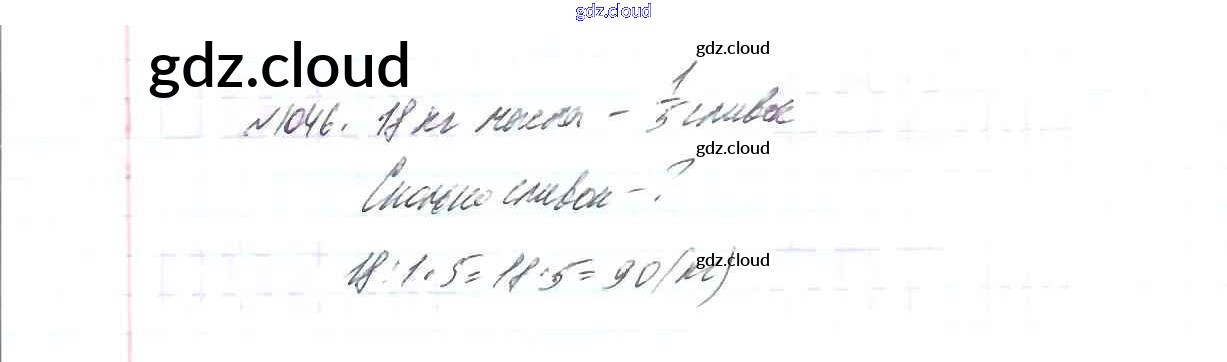 gdz.cloud
gdz.cloud
gdz.cloud
№1046. 18 кг масла – 1/5 сливок
gdz.cloud
Сколько сливок – ?
gdz.cloud
18:1·5=18:5=90(кг)